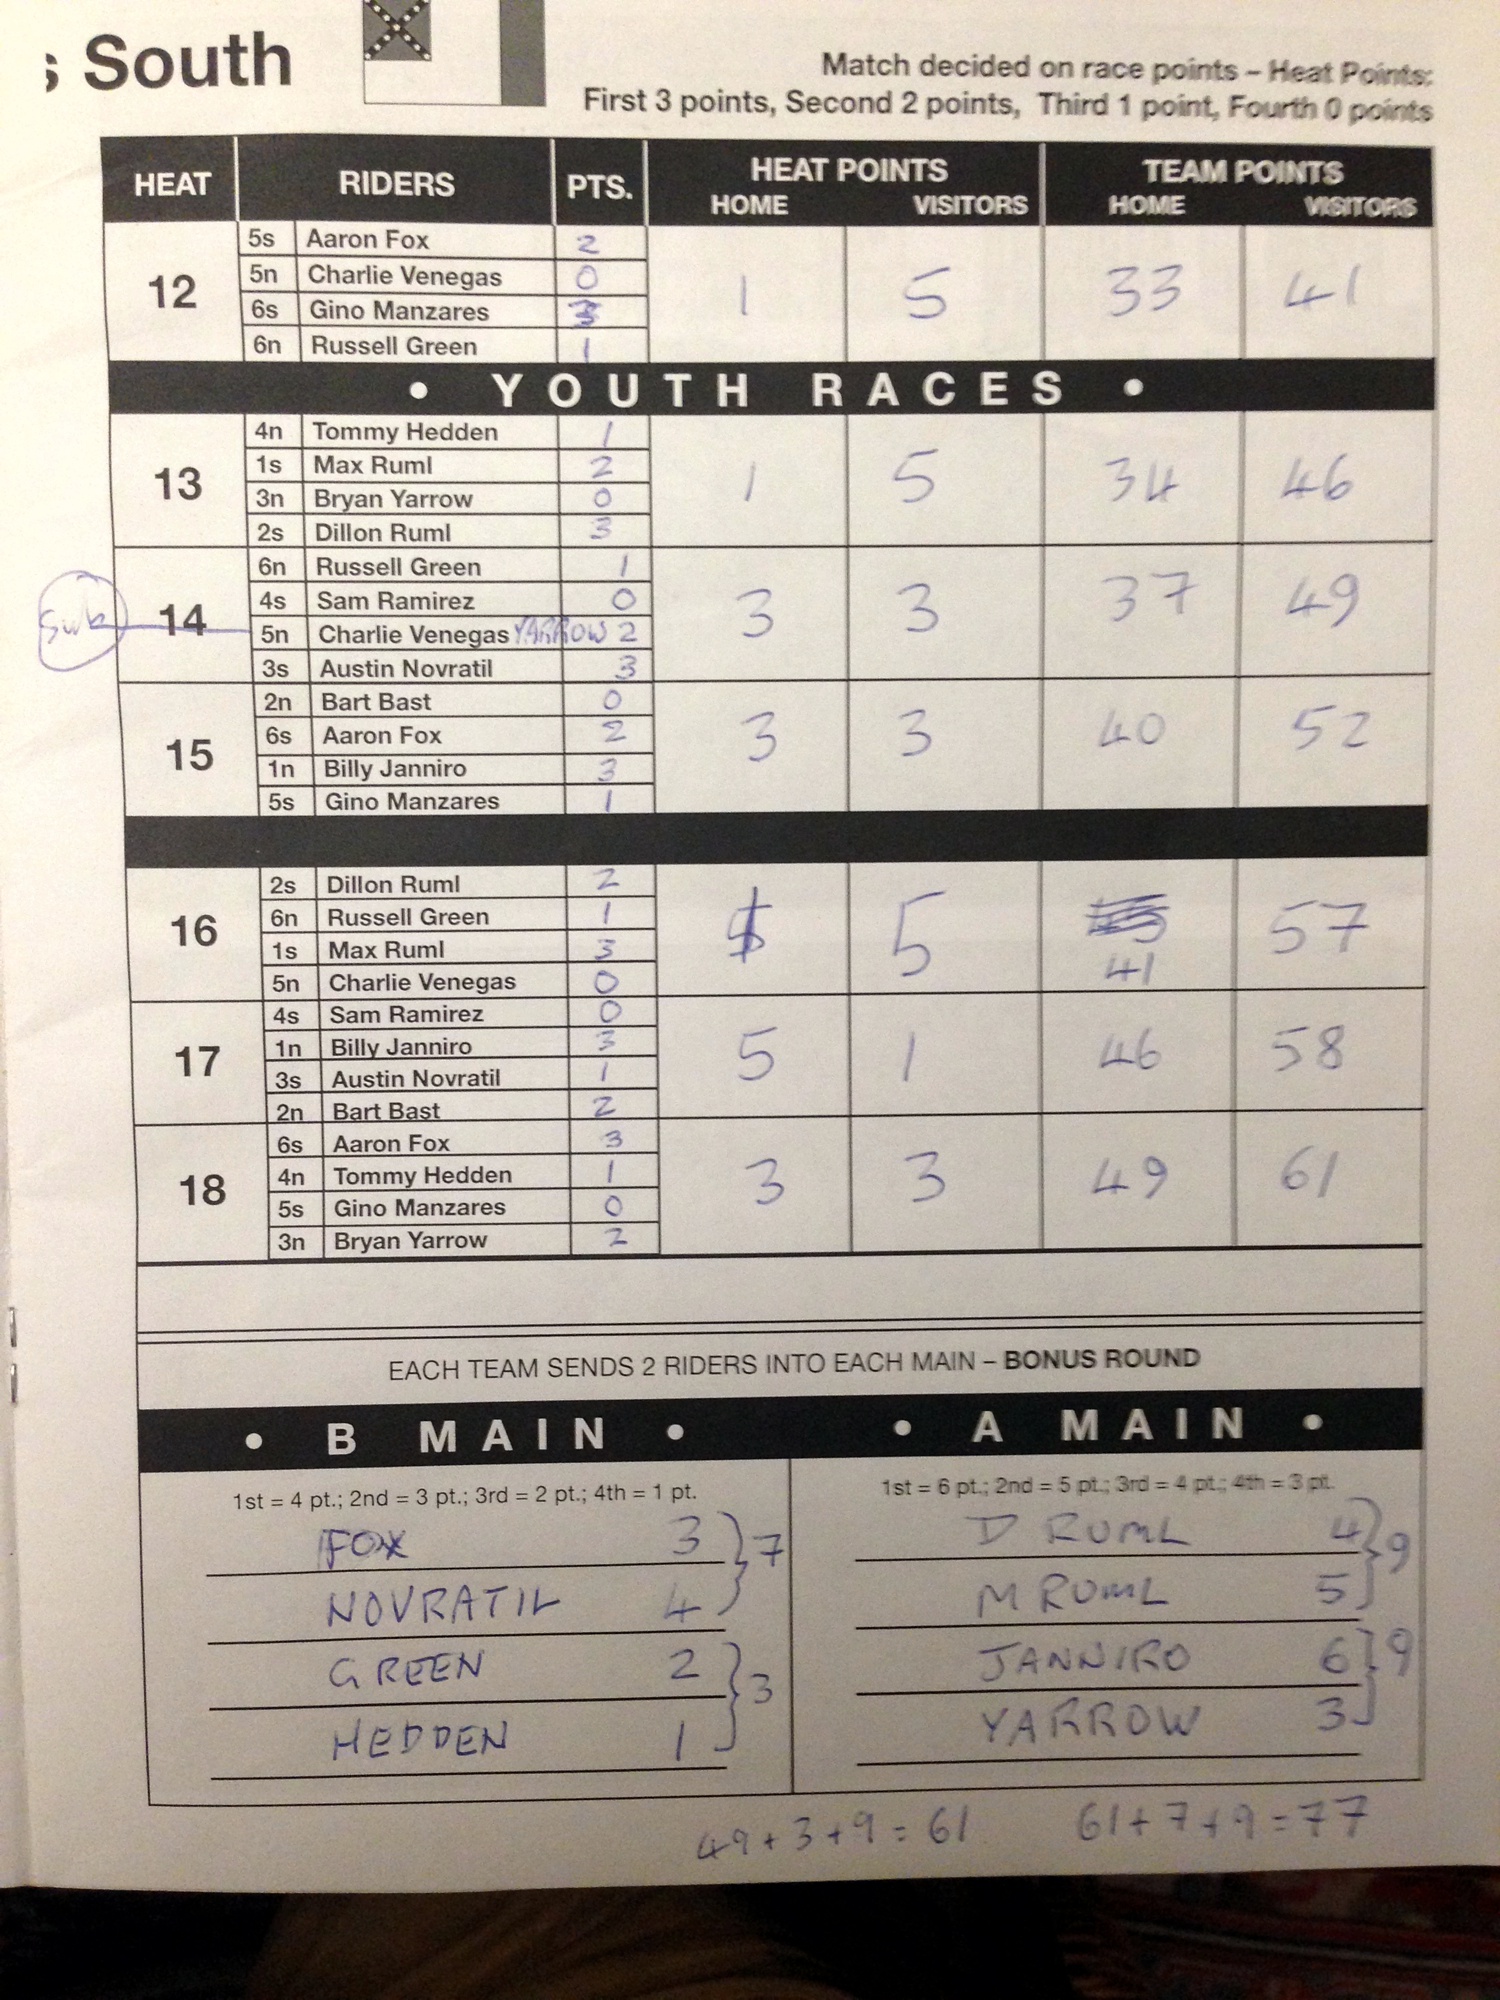 South
Match decided on race points – Heat Points:
First 3 points, Second 2 points, Third 1 point, Fourth 0 points
HEAT RIDERS PTS. HEAT POINTS TEAM POINTS
HOME VISITORS HOME VISITORS
12 1 5 33 41
5s Aaron Fox 2
5n Charlie Venegas 0
6s Gino Manzares 3
6n Russell Green 1
• YOUTH RACES •
13 1 5 34 46
4n Tommy Hedden 1
1s Max Ruml 2
3n Bryan Yarrow 0
2s Dillon Ruml 3
Sub 14 3 3 37 49
6n Russell Green 1
4s Sam Ramirez 0
5n Charlie Venegas YARROW 2
3s Austin Novratil 3
15 3 3 40 52
2n Bart Bast 0
6s Aaron Fox 2
1n Billy Janniro 3
5s Gino Manzares 1
16 1 5 41 57
2s Dillon Ruml 2
6n Russell Green 1
1s Max Ruml 3
5n Charlie Venegas 0
17 5 1 46 58
4s Sam Ramirez 0
1n Billy Janniro 3
3s Austin Novratil 1
2n Bart Bast 2
18 3 3 49 61
6s Aaron Fox 3
4n Tommy Hedden 1
5s Gino Manzares 0
3n Bryan Yarrow 2
EACH TEAM SENDS 2 RIDERS INTO EACH MAIN – BONUS ROUND
• B MAIN •
1st = 4 pt.; 2nd = 3 pt.; 3rd = 2 pt.; 4th = 1 pt.
FOX 3 } 7
NOVRATIL 4
GREEN 2 } 3
HEDDEN 1
• A MAIN •
1st = 6 pt.; 2nd = 5 pt.; 3rd = 4 pt.; 4th = 3 pt.
D RUML 4 } 9
M RUML 5
JANNIRO 6 } 9
YARROW 3
49 + 3 + 9 = 61
61 + 7 + 9 = 77